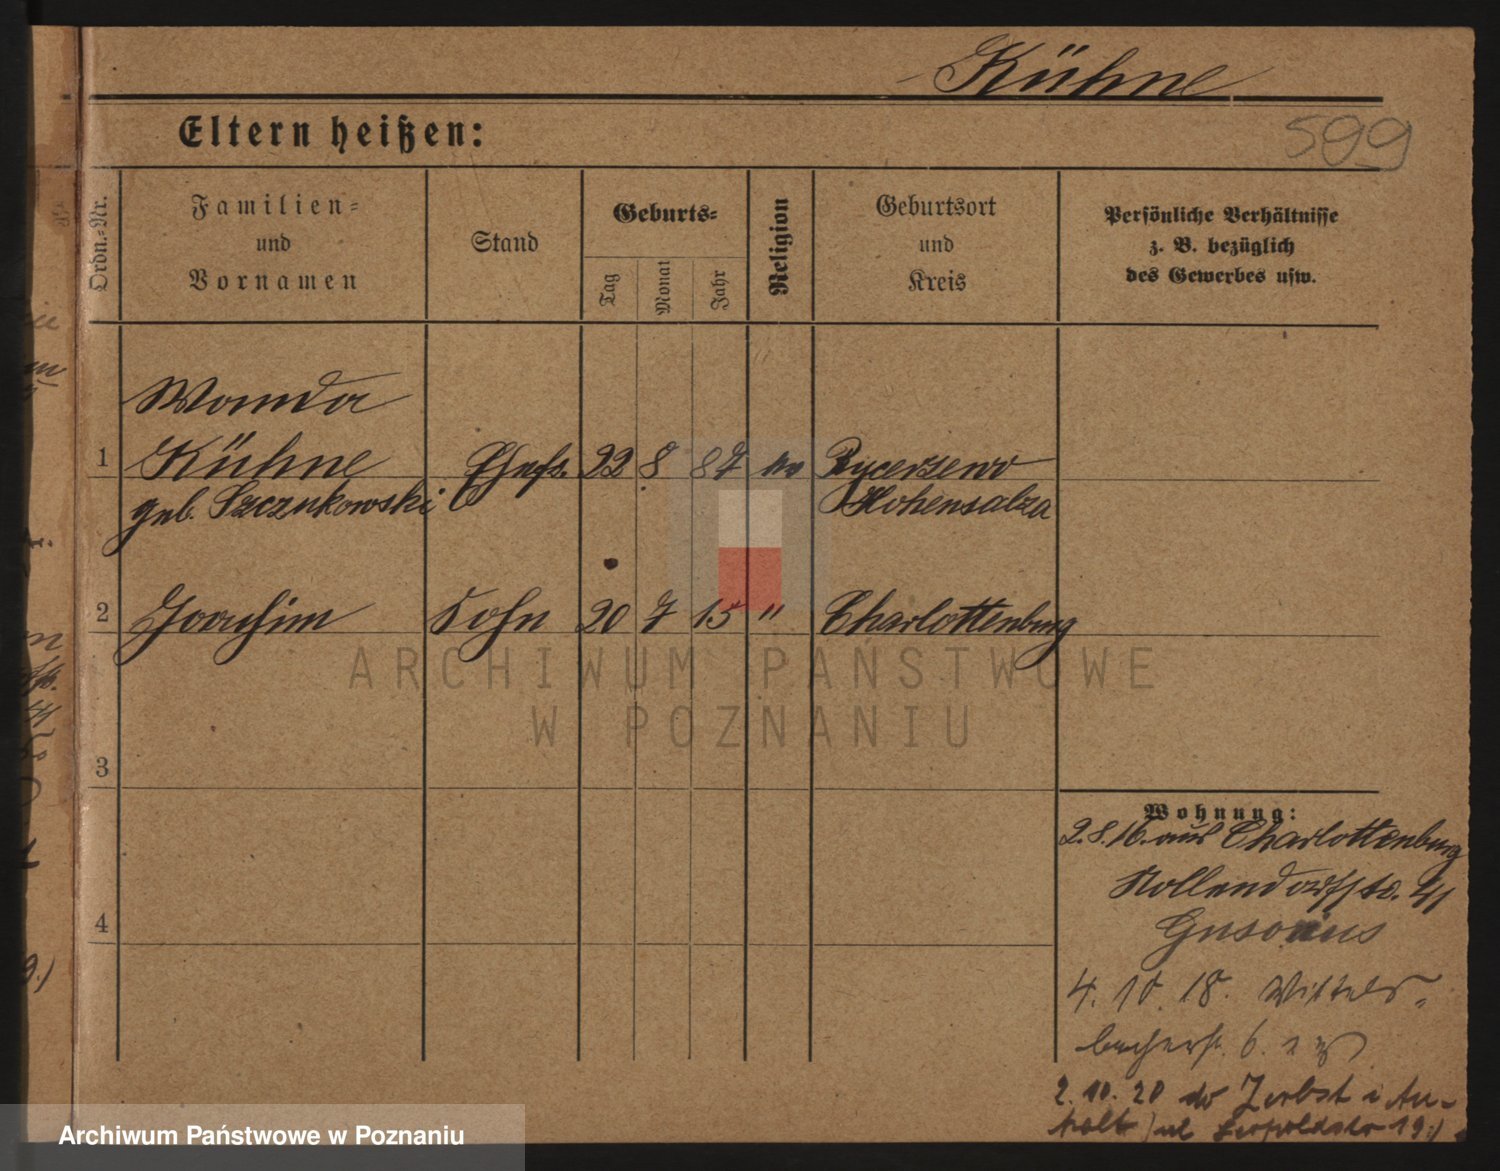 Kühne
Eltern heißen:
599
Ordn.=Nr.
Familien=
und
Vornamen
Stand
Geburts=
Tag
Monat
Jahr
Religion
Geburtsort
und
Kreis
Persönliche Verhältnisse
z. B. bezüglich
des Gewerbes usw.
Wanda
1 Kühne Ehefr. 22 8 87 ev Rycerzewo
geb. Szczukowski Hohensalza
2 Joachim Sohn 20 7 15 " Charlottenburg
ARCHIWUM PAŃSTWOWE
W POZNANIU
3
Wohnung:
2.8.16. aus Charlottenburg
Nollendorffstr. 41
4
4. 10. 18. Wittels=
bacherstr. 6.
2. 10. 20 Zerbst i An=
halt Leopoldstr 19
Archiwum Państwowe w Poznaniu